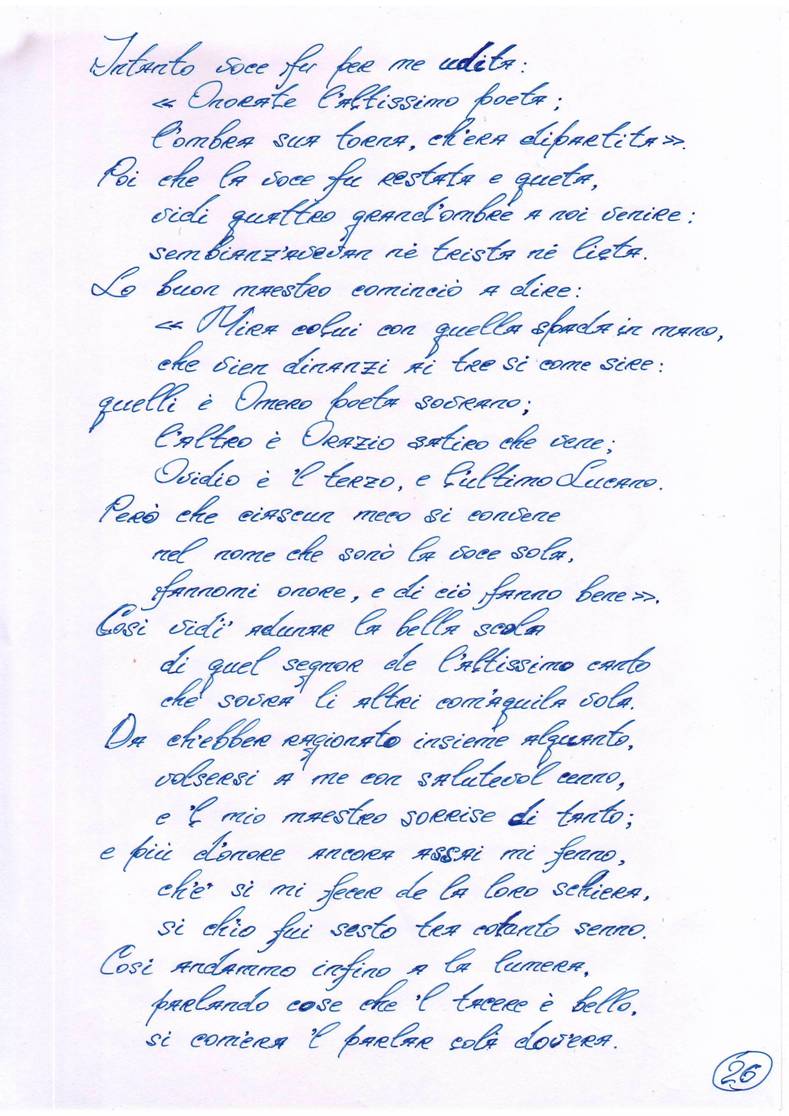 Intanto voce fu per me udita:
« Onorate l'altissimo poeta;
l'ombra sua torna, ch'era dipartita».
Poi che la voce fu restata e queta,
vidi quattro grand'ombre a noi venire:
sembianz'avevan nè trista nè lieta.
Lo buon maestro cominciò a dire:
« Mira colui con quella spada in mano,
che vien dinanzi ai tre si come sire:
quelli è Omero poeta sovrano;
l'altro è Orazio satiro che vene;
Ovidio è 'l terzo, e l'ultimo Lucano.
Però che ciascun meco si convene
nel nome che sonò la voce sola,
fannomi onore, e di ciò fanno bene».
Così vidi' adunar la bella scola
di quel segnor de l'altissimo canto
che sovra li altri com'aquila vola.
Da ch'ebber ragionato insieme alquanto,
volsersi a me con salutevol cenno,
e 'l mio maestro sorrise di tanto;
e più d'onore ancora assai mi fenno,
ch'e' si mi fecer de la loro schiera,
si ch'io fui sesto tra cotanto senno.
Così andammo infino a la lumera,
parlando cose che 'l tacere è bello,
si com'era 'l parlar colà dov'era.
26